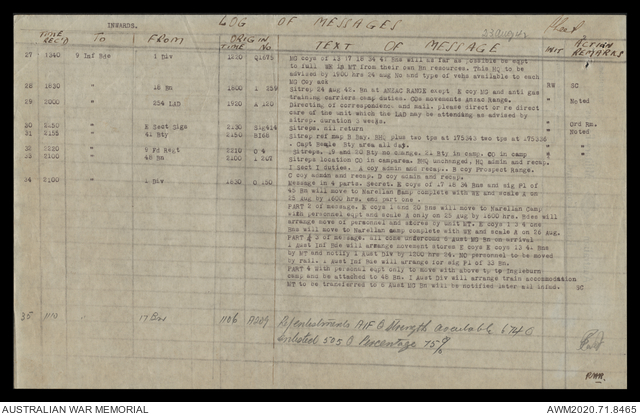 INWARDS. LOG OF MESSAGES
TIME REC'D TO FROM ORIGIN TIME NO TEXT OF MESSAGE INIT ACTION REMARKS
27 1340 9 Inf Bde 1 Div 1220 Q1675 MG coys of 13 17 18 34 47 Bns will as far as possible be eqpt
to full WE in MT from their own Bn resources. This HQ to be
advised by 1600 hrs 24 Aug no and type of vens available to each
MG Coy ack
28 1830 " 18 Bn 1800 I 259 Sitrep 24 Aug 42. Bn at ANZAC RANGE except E coy MG and anti gas RW SC
training carriers camp duties. COs movements Anzac Range.
29 2000 " 224 LAD 1920 A 120 Directing of correspondent and mail. please direct or re direct " Noted
care of the unit which the LAD may be attending as advised by
sitrep. duration 3 weeks.
30 2150 " E Sect Sigs 2130 SIG414 Sitreps. nil return " Ord Rm.
31 2155 " 41 Bty 2150 BI68 Sitrep ref map B Bay. BHQ plus two tps at 175343 two tps at 175338 " Noted
Capt Beale Bty area all day.
32 2220 " 9 Fd Regt 2210 O 4 Sitreps. 19 and 20 Bty no change. 21 Bty in camp. CO in camp " "
33 2300 " 45 Bn 2100 I 207 Sitreps location CO in camparea. BHQ unchanged. HQ admin and recap. " "
I sect I duties. A coy admin and recap. B coy Prospect Range.
C coy admin and recap. D coy admin and recap.
34 2100 " 1 Div 1830 O 130 Message in 4 parts. Secret. E coys of 17 18 34 Bns and sig Pl of
45 Bn will move to Narellan Camp complete with WE and scale A on
25 Aug by 1600 hrs. end part one.
PART 2 of message. E coys 1 and 20 Bns will move to Narellan Camp
with personnel eqpt and scale A only on 25 Aug by 1600 hrs. Bdes will
arrange move of personnel and stores by unit MT. E coys 1 3 4 one
Bns will move to Narellan camp complete with WE and scale A on 26 Aug.
PART 3 of message. All come undercomd 6 Aust MG Bn on arrival
1 Aust Inf Bde will arrange movement stores E coys E coys 13 41 Bns
by MT and notify 1 Aust Div by 1200 hrs 24. MG personnel to be moved
by rail. 1 Aust Inf Bde will arrange for sig Pl of 33 Bn.
PART 4 Sixth personnel eqpt only to move with above up to Ingleburn
camp and be attached to 45 Bn. 1 Aust Div will arrange train accommodation
MT to be transferred to 6 Aust MG Bn will be notified later all infmd. SC
35 1110 " 17 Bn 1106 A209 AIF O Strength available 674 O
enlisted 505 O Percentage 75%
AUSTRALIAN WAR MEMORIAL AWM2020.71.8465